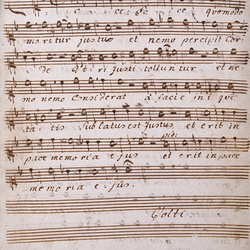 ce, ec ce quomodo
moritur justus et nemo percipit cor
de Viri justi tolluntur et ne
mo nemo considerat a facie ini qui
ta tis sublatus est justus et erit in
pace memoria e jus et erit in pace
me mo ria e jus.
Volti